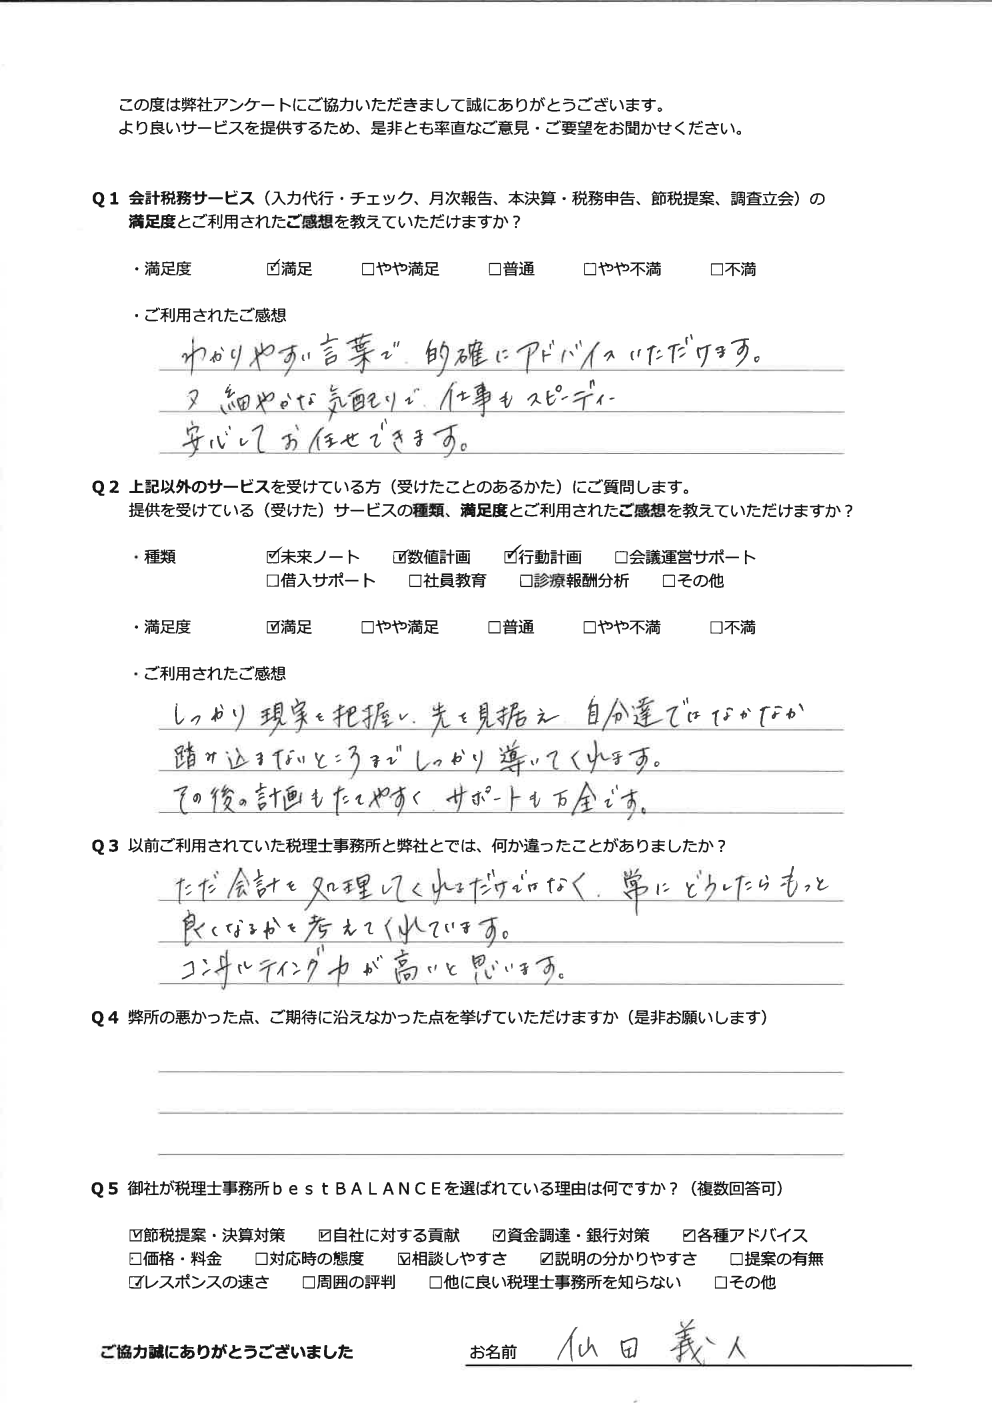 この度は弊社アンケートにご協力いただきまして誠にありがとうございます。
より良いサービスを提供するため、是非とも率直なご意見・ご要望をお聞かせください。
Q1 会計税務サービス（入力代行・チェック、月次報告、本決算・税務申告、節税提案、調査立会）の
満足度とご利用されたご感想を教えていただけますか？
・満足度 ☑満足 □やや満足 □普通 □やや不満 □不満
・ご利用されたご感想
わかりやすい言葉で、的確にアドバイスいただけます。
又 細やかな気配りで、仕事もスピーディー
安心してお任せできます。
Q2 上記以外のサービスを受けている方（受けたことのあるかた）にご質問します。
提供を受けている（受けた）サービスの種類、満足度とご利用されたご感想を教えていただけますか？
・種類 ☑未来ノート ☑数値計画 ☑行動計画 □会議運営サポート
□借入サポート □社員教育 □診療報酬分析 □その他
・満足度 ☑満足 □やや満足 □普通 □やや不満 □不満
・ご利用されたご感想
しっかり現実を把握し、先を見据え 自分達ではなかなか
踏み込まないところまでしっかり導いてくれます。
その後の計画もたてやすく、サポートも万全です。
Q3 以前ご利用されていた税理士事務所と弊社とでは、何か違ったことがありましたか？
ただ会計を処理してくれるだけではなく、常にどうしたらもっと
良くなるかを考えてくれています。
コンサルティング力が高いと思います。
Q4 弊所の悪かった点、ご期待に沿えなかった点を挙げていただけますか（是非お願いします）
Q5 御社が税理士事務所ｂｅｓｔＢＡＬＡＮＣＥを選ばれている理由は何ですか？（複数回答可）
☑節税提案・決算対策 ☑自社に対する貢献 ☑資金調達・銀行対策 ☑各種アドバイス
□価格・料金 □対応時の態度 ☑相談しやすさ ☑説明の分かりやすさ □提案の有無
☑レスポンスの速さ □周囲の評判 □他に良い税理士事務所を知らない □その他
ご協力誠にありがとうございました お名前 仙田 義人